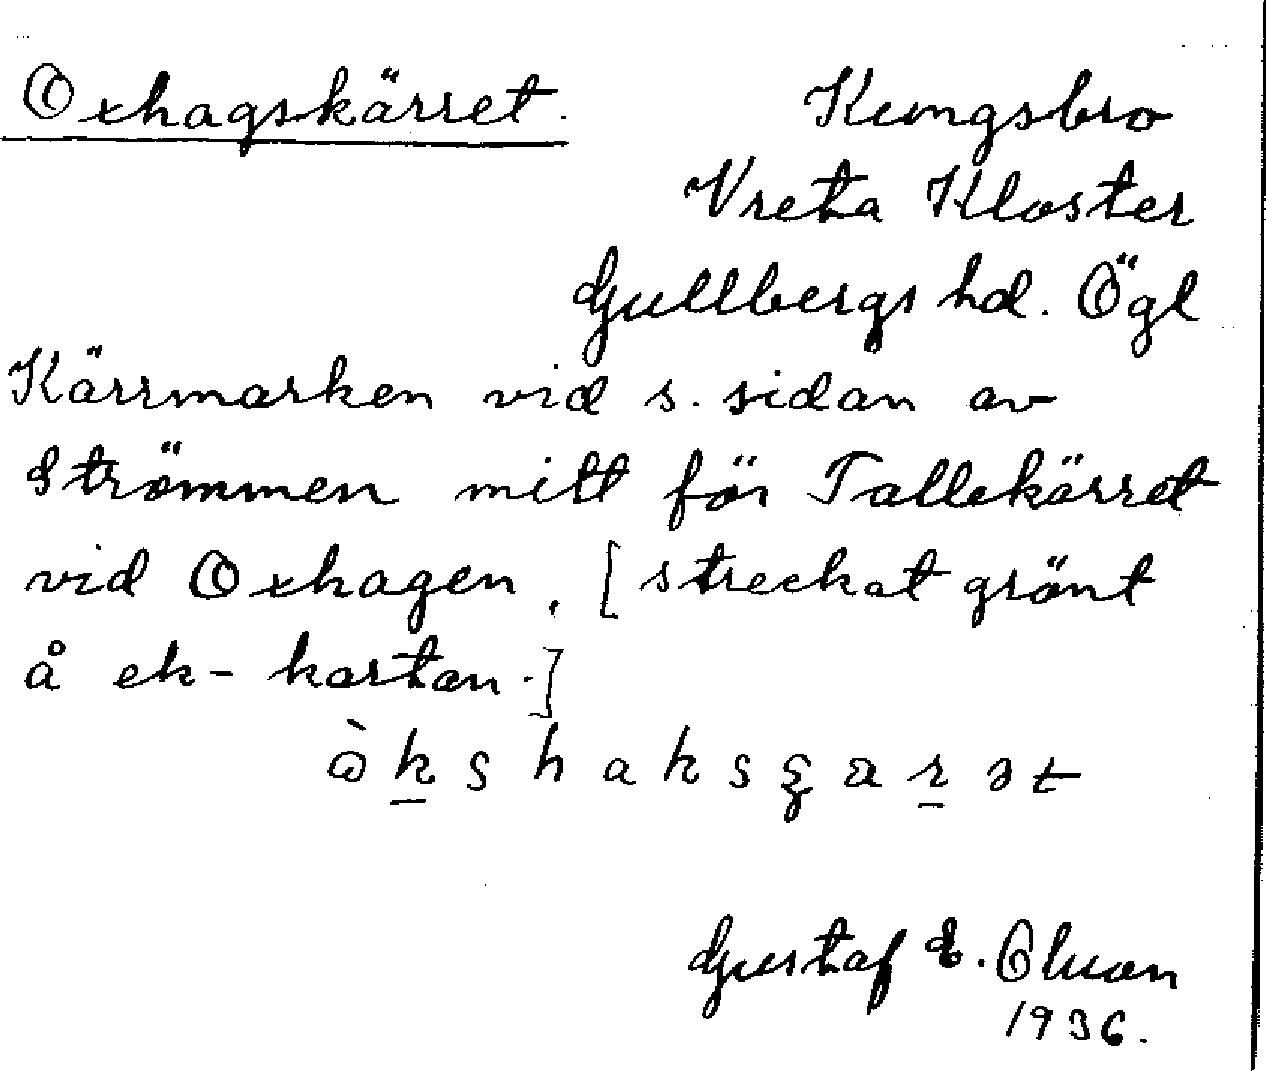 Oxhagskärret.
Kungsbro
Vreta Kloster
Gullbergs hd. Ögl
Kärrmarken vid s. sidan av
Strömmen mitt för Tallekärret
vid Oxhagen. [streckat grönt
å ek-kartan.]
Gustaf E. Olsson
1936.